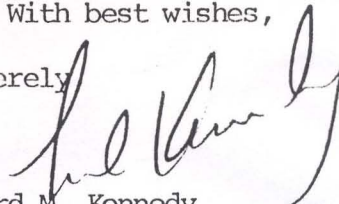 With best wishes,
erely
rd M. Kennedy